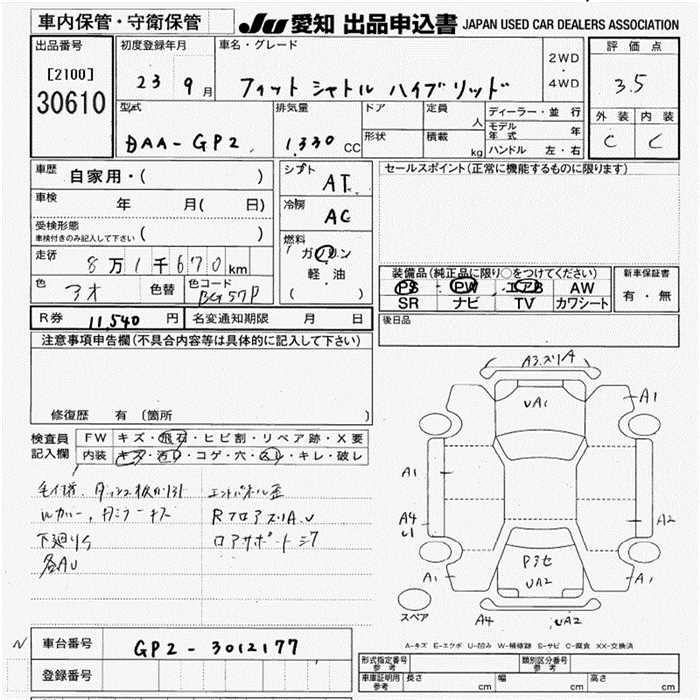 車内保管・守衛保管
JU 愛知 出品申込書 JAPAN USED CAR DEALERS ASSOCIATION
出品番号
[2100]
30610
初度登録年月
23 9月
車名・グレード
フィット シャトル ハイブリッド
2WD
・
4WD
評価点
3.5
外装 内装
C C
型式
DAA-GP2
排気量
1,330 CC
ドア
形状
定員
人
積載
kg
ディーラー・並行
モデル年式 年
ハンドル 左・右
車歴
自家用・( )
車検
年 月( 日)
受検形態
車検付きのみ記入して下さい ( )
走行
8万1千670km
色
アオ
色替
色コード
BG57P
シフト
AT
冷房
AC
燃料
ガソリン
軽油
( )
セールスポイント(正常に機能するものに限ります)
装備品(純正品に限り○をつけてください)
PS PW エアB AW
SR ナビ TV カワシート
新車保証書
有・無
R券 11,540 円
名変通知期限 月 日
後日品
注意事項申告欄(不具合内容等は具体的に記入して下さい)
修復歴 有 (箇所
検査員
記入欄
FW キズ・飛石・ヒビ割・リペア跡・X要
内装 キズ・汚レ・コゲ・穴・スレ・キレ・破レ
下廻りサ
各AU
RフロアズリA.U
ロアサポートシア
A3.ズリA
UA1
A1
A1
A4
U1
A2
Pヲセ
UA2
A1
A1
スペア
A4
UA2
A-キズ E-エクボ U-凹み W-補修跡 S-サビ C-腐食 XX-交換済
N
車台番号
GP2-3012177
登録番号
形式指定番号
参考
類別区分番号
参考
車庫証明用
参考
長さ cm
幅 cm
高さ cm